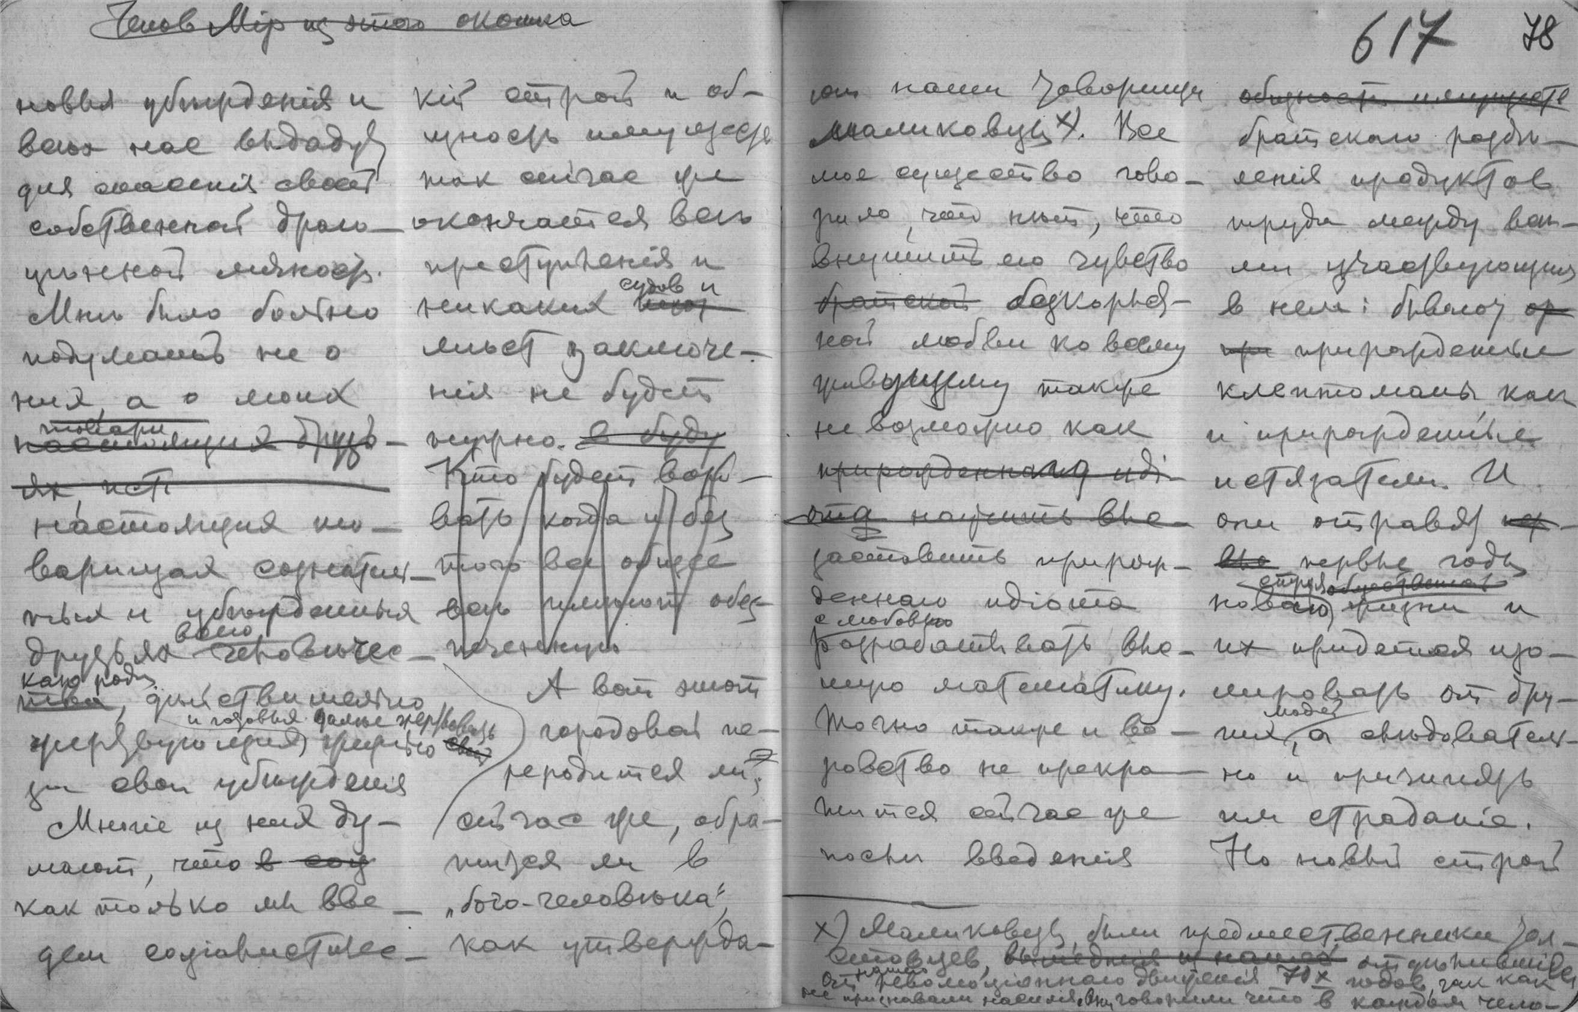 Челов Мір из этого окошка
новыя убѣжденія и
всѣх нас выдадут
для спасенія своей
собственной драго-
цѣнной личности.
Мнѣ было больно
подумать не о
них, а о моих
товари
настоящих друзь-
ях, ист
настоящих то-
варищах сознатель-
ных и убѣжденных
друзьях всего человѣчес-
каго рода
тва, дѣйствительно
и готовых далее жертвовать
жертвующих жизнью своей
за свои убѣжденія
Многіе из них ду-
мают, что в соц
как только мы вве-
дем соціалистичес-
кій строй и об-
щность имущества
так сейчас же
окончатся всѣ
преступленія и
судов и
никаких мѣст
мѣст заключе-
нія не будет
нужно. а буду
Кто будет воро-
вать когда и без
того все общее
всѣ имѣют обез-
печенную
А вот этот
городовой пе-
реродится ли
сейчас же, обра-
тится ли в
„бого-человѣка“,
как утвержда-
617 78
ют наши товарищи
маликовцы x). Все
мое существо гово-
рило, что нѣт, что
внушить ему чувство
братской безкорыст-
ной любви ко всему
живущему также
невозможно как
прирожденнаго иді-
ота научить вне-
заставить прирож-
деннаго идіота
с любовью
разрабатывать выс-
шую математику.
Точно также и во-
ровство не прекра-
тится сейчас же
послѣ введенія
общности имуществ
братскаго раздѣ-
ленія продуктов
труда между всѣ-
ми участвующими
в нем: бывают ор
при прирожденные
клептоманы как
и прирожденные
истязатели. И
они отравят
первые годы
строя общественной
новой жизни и
их придется изо-
лировать от дру-
людей
гих, а слѣдователь-
но и причинять
им страданіе.
Но новый строй
x) Маликовцы были предшественники Тол-
стовцев, вышедшія из нашей отдѣлившіеся
от нашего революціоннаго движенія 70х годов, так как
не признавали насилія. Они говорили что в каждом чело-